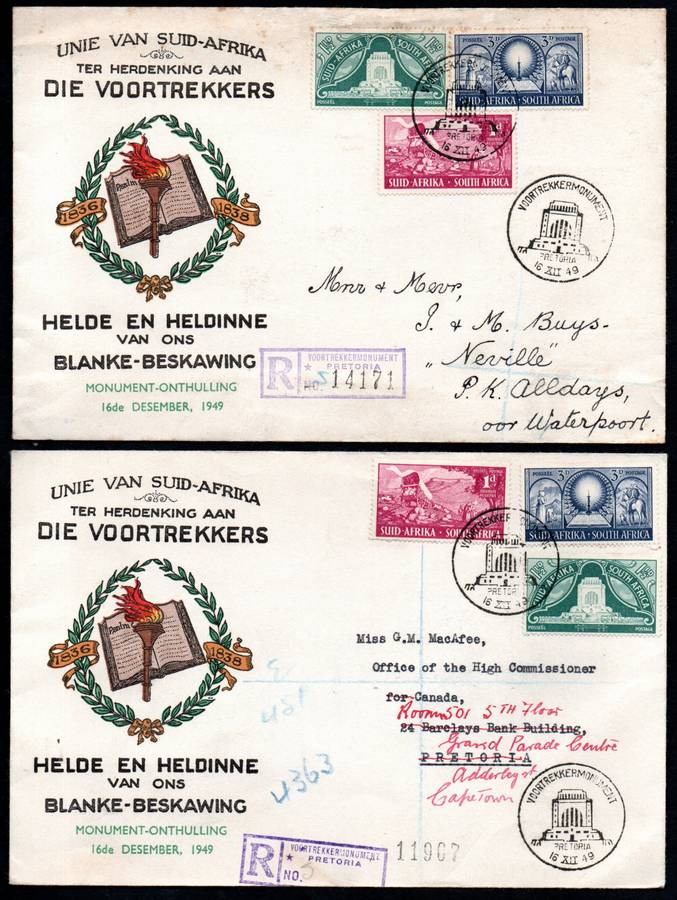 UNIE VAN SUID-AFRIKA
TER HERDENKING AAN
DIE VOORTREKKERS
Psalm
1836 1838
HELDE EN HELDINNE
VAN ONS
BLANKE-BESKAWING
MONUMENT-ONTHULLING
16de DESEMBER, 1949
SUID-AFRIKA SOUTH AFRICA
POSSEËL POSTAGE
POSSEËL 3D 3D POSTAGE
SUID-AFRIKA · SOUTH AFRICA
1d
SUID-AFRIKA · SOUTH AFRICA
PRETORIA
16 XII 49
VOORTREKKERMONUMENT
PRETORIA
16 XII 49
Mnr & Mevr,
J. & M. Buys-
„Neville"
P.K. Alldays,
oor Waterpoort.
R VOORTREKKERMONUMENT
PRETORIA
NO. 14171
UNIE VAN SUID-AFRIKA
TER HERDENKING AAN
DIE VOORTREKKERS
Psalm
1836 1838
HELDE EN HELDINNE
VAN ONS
BLANKE-BESKAWING
MONUMENT-ONTHULLING
16de DESEMBER, 1949
1d
SUID-AFRIKA · SOUTH AFRICA
POSSEËL 3D 3D POSTAGE
SUID-AFRIKA · SOUTH AFRICA
SUID-AFRIKA SOUTH AFRICA
POSSEËL POSTAGE
PRETORIA
16 XII 49
Miss G.M. MacAfee,
Office of the High Commissioner
for Canada,
Room 501 5TH Floor
24 Barclays Bank Building,
Grand Parade Centre
PRETORIA
Adderley st
Capetown
4363
VOORTREKKERMONUMENT
PRETORIA
16 XII 49
R VOORTREKKERMONUMENT
PRETORIA
NO. 11967